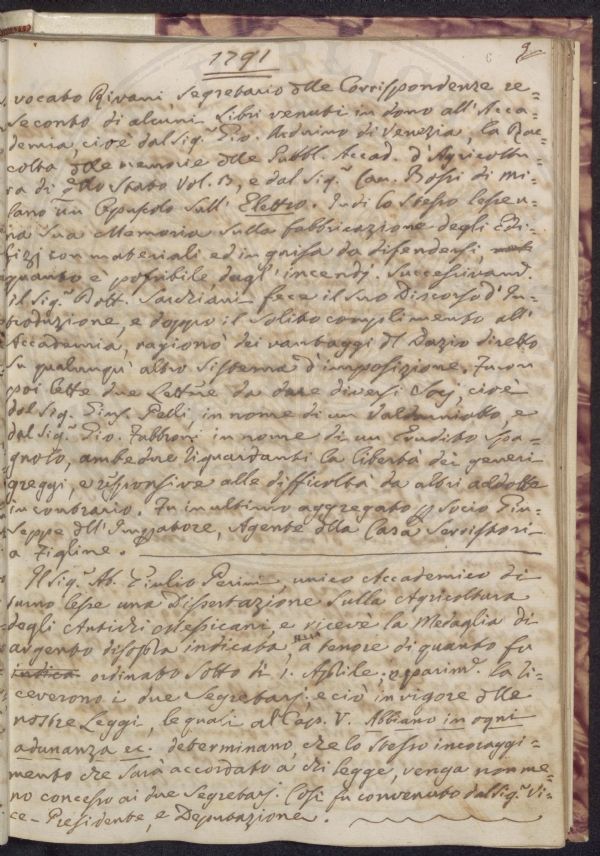 1791
9
vocato Rivani Segretario delle Corrispondenze re=
se conto di alcuni Libri venuti in dono all'Acca=
demia, cioè dal Sig.r Gio. Arduino di Venezia, la Rac=
colta delle memorie delle Pubbl. Accad. d'Agricoltu=
ra di dello Stato Vol. 13, e dal Sig.r Cav. Bossi di Mi=
lano un Opuscolo sull' Elettro. Indi lo stesso lesse u=
na sua Memoria sulla fabbricazione degli Edi=
fizj con materiali ed in guisa da difendersi,
quanto è possibile, dagl' incendj. Successivam.e
il Sig.r Dott. Sarchiani fece il suo Discorso d'In=
troduzione, e doppo il solito complimento all'
Accademia, ragionò dei vantaggi del Dazio diretto
su qualunqu' altro sistema d'imposizione. Furon
poi lette due Lettere da due diversi Socj, cioè
dal Sig.r Gius. Pelli, in nome di un Valdarniotto, e
dal Sig.r Gio. Fabbroni in nome di un Erudito Spa=
gnolo, ambedue riguardanti la libertà dei generi
greggi, e responsive alle difficoltà da altri addotte
in contrario. Fu in ultimo aggregato p Socio Giu=
seppe dell' Imperatore, Agente della Casa Serristori
a Figline.
Il Sig.r Ab. Giulio Perini, unico Accademico di
turno lesse una Dissertazione sulla Agricoltura
degli Antichi Messicani, e riceve la Medaglia di
argento di sopra indicata, a tenore di quanto fu
indica ordinato sotto dì 1. Aprile; e parim.e la ri=
ceverono i due Segretarj, e ciò in vigore delle
nostre Leggi, le quali al Cap. V. Abbiano in ogni
adunanza ec. determinano che lo stesso incoraggi=
mento che sarà accordato a chi legge, venga non me=
no concesso ai due Segretarj. Così fu convenuto dal Sig.r Vi=
ce-Presidente, e Deputazione.